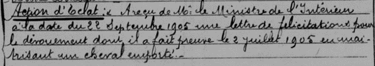 Action d'Eclat : Reçu de Mr le Ministre de l'Intérieur
à la date du 22 Septembre 1905 une lettre de félicitations pour
le dévouement dont il a fait preuve le 2 juillet 1905 en maî-
trisant un cheval emporté.-